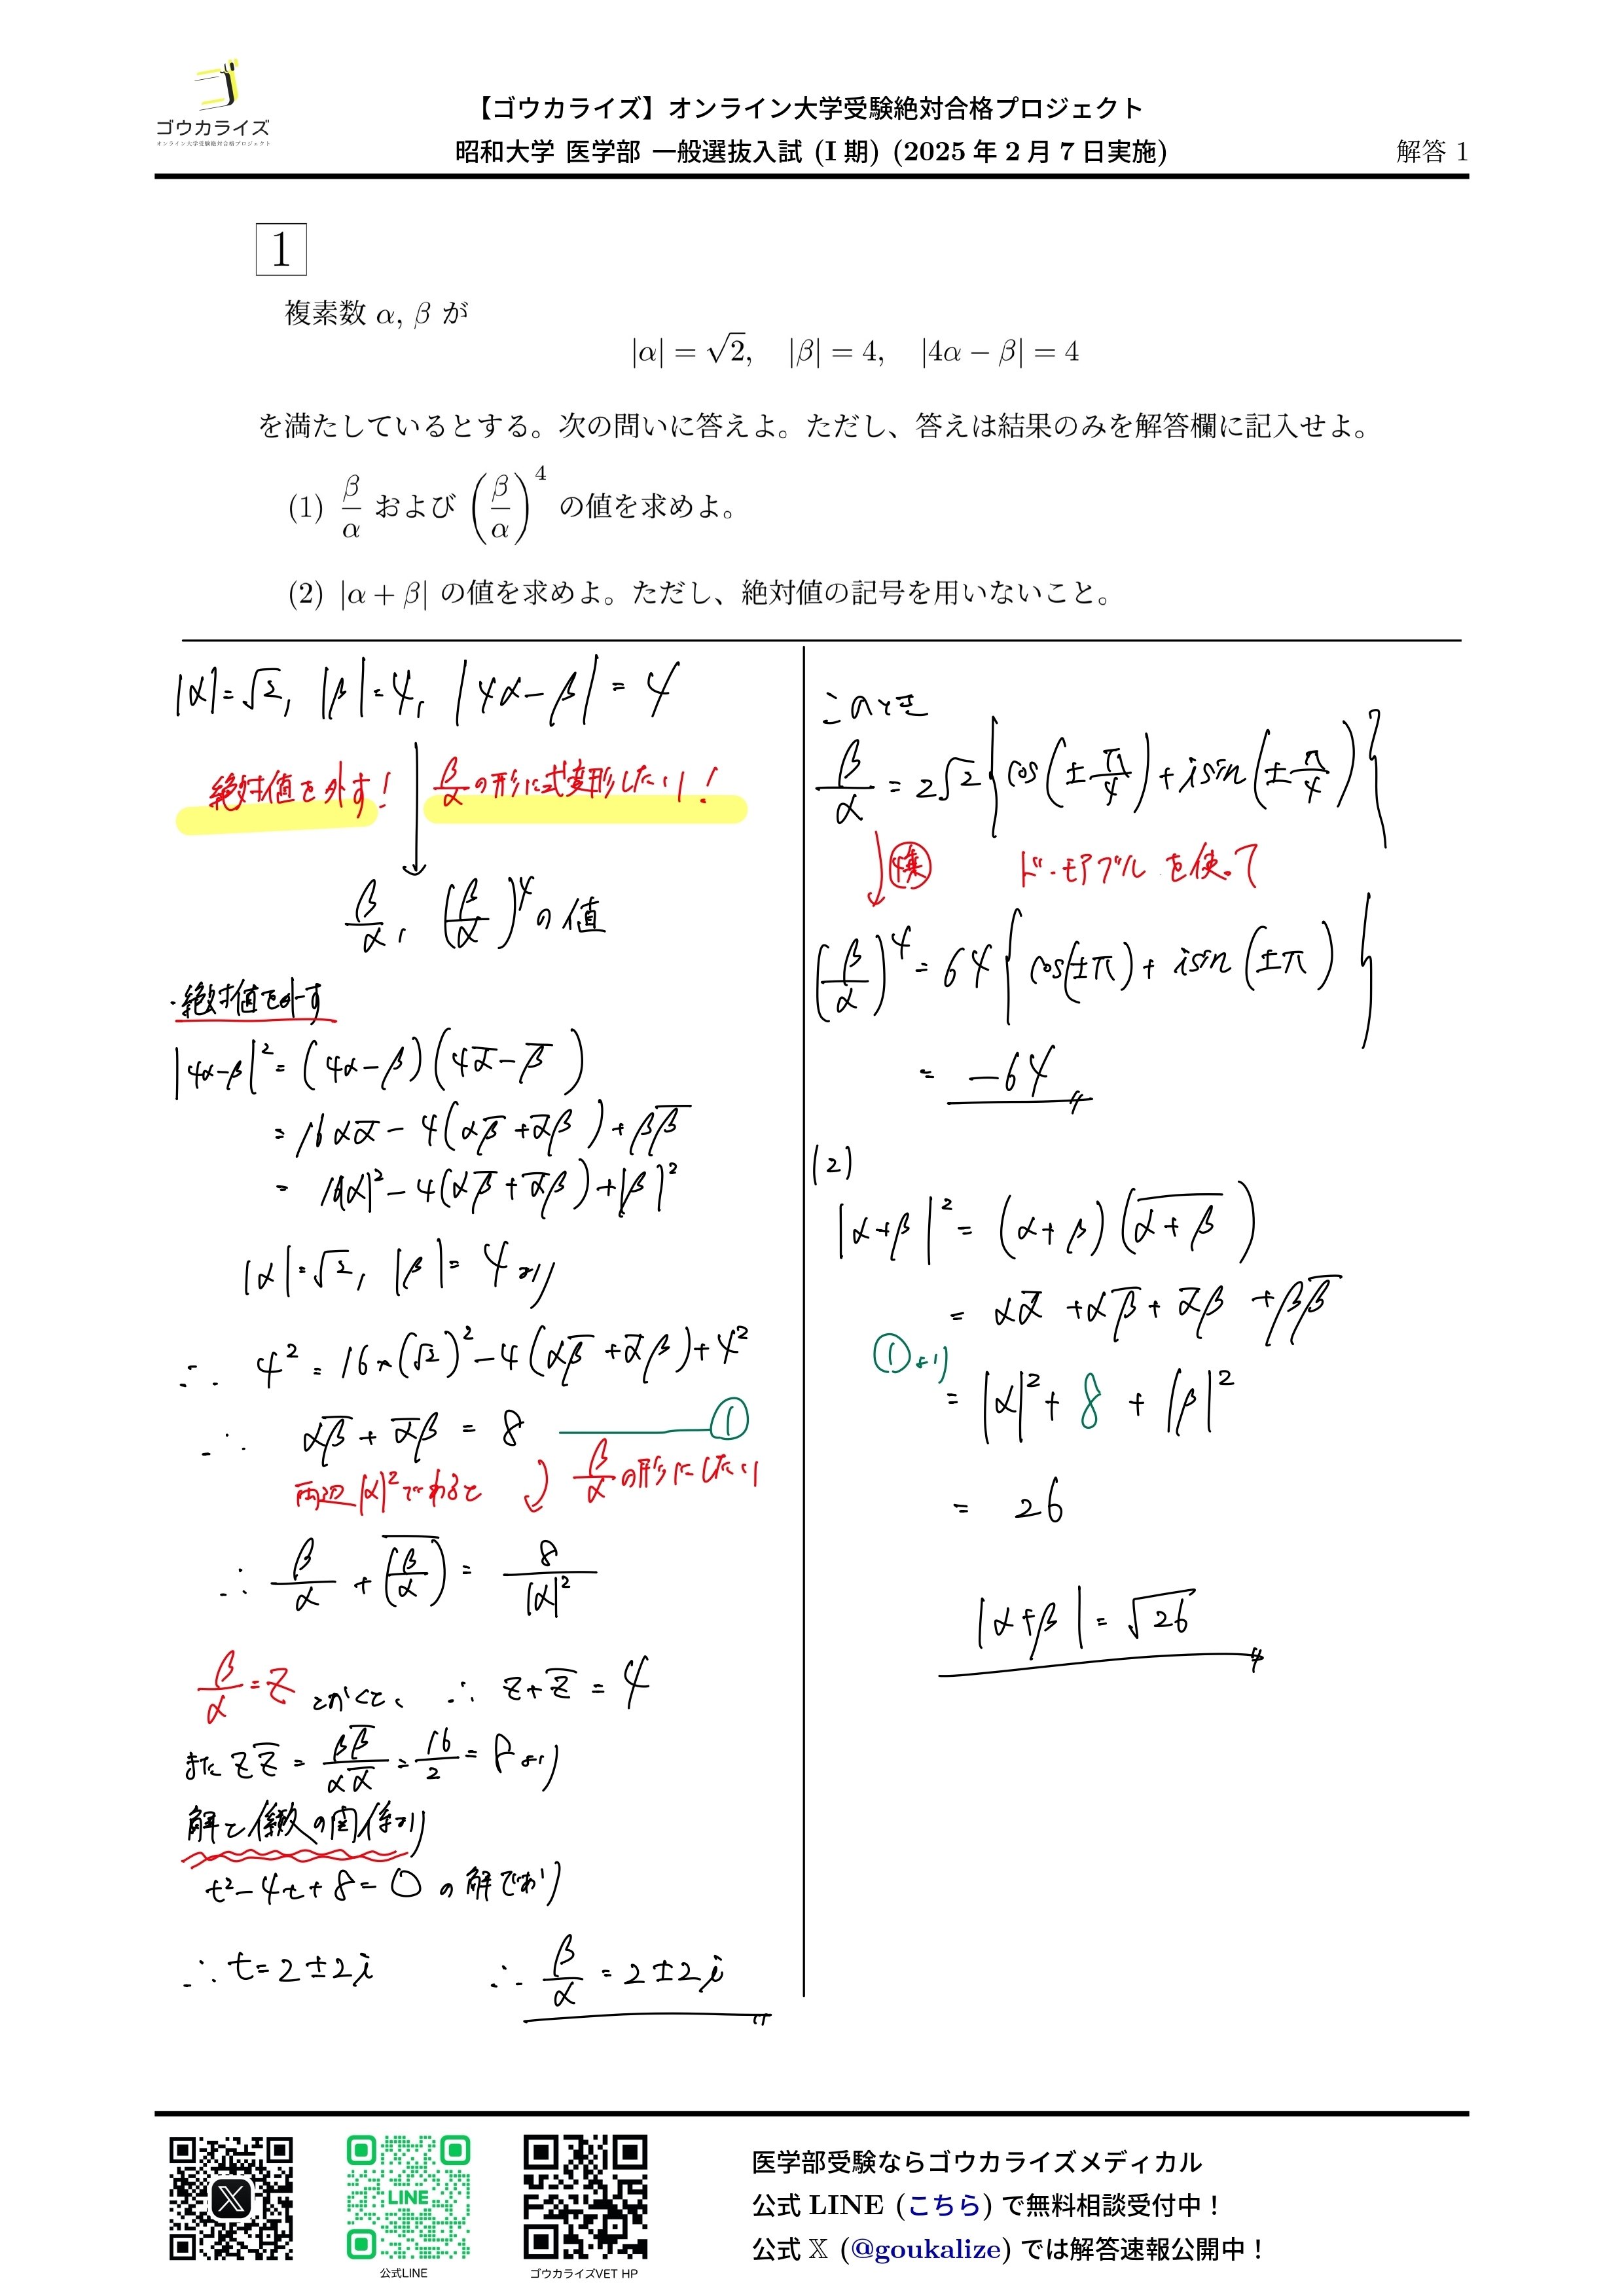 ゴウカライズ
オンライン大学受験絶対合格プロジェクト
【ゴウカライズ】オンライン大学受験絶対合格プロジェクト
昭和大学 医学部 一般選抜入試 (I 期) (2025 年 2 月 7 日実施)
解答 1
1
複素数 α, β が
|α| = √2, |β| = 4, |4α − β| = 4
を満たしているとする。次の問いに答えよ。ただし、答えは結果のみを解答欄に記入せよ。
(1) β/α および (β/α)^4 の値を求めよ。
(2) |α + β| の値を求めよ。ただし、絶対値の記号を用いないこと。
|α|=√2, |β|=4, |4α−β|=4
絶対値を外す! β/αの形に式変形したい!
β/α, (β/α)^4の値
・絶対値を外す
|4α−β|^2=(4α−β)(4α̅−β̅)
=16αα̅−4(αβ̅+α̅β)+ββ̅
=16|α|^2−4(αβ̅+α̅β)+|β|^2
|α|=√2, |β|=4より
∴ 4^2=16×(√2)^2−4(αβ̅+α̅β)+4^2
∴ αβ̅+α̅β=8 ①
両辺|α|^2でわると β/αの形にしたい
∴ β/α+\overline{(β/α)}=8/|α|^2
β/α=z とかくと、 ∴ z+z̅=4
また zz̅=ββ̅/αα̅=16/2=8より
解と係数の関係より
t^2−4t+8=0の解であり
∴ t=2±2i ∴ β/α=2±2i
このとき
β/α=2√2{cos(±π/4)+isin(±π/4)}
4乗 ド・モアブルを使って
(β/α)^4=64{cos(±π)+isin(±π)}
=−64
(2)
|α+β|^2=(α+β)(\overline{α+β})
=αα̅+αβ̅+α̅β+ββ̅
①より
=|α|^2+8+|β|^2
=26
|α+β|=√26
LINE
公式LINE
ゴウカライズVET HP
医学部受験ならゴウカライズメディカル
公式 LINE (こちら) で無料相談受付中！
公式 𝕏 (@goukalize) では解答速報公開中！